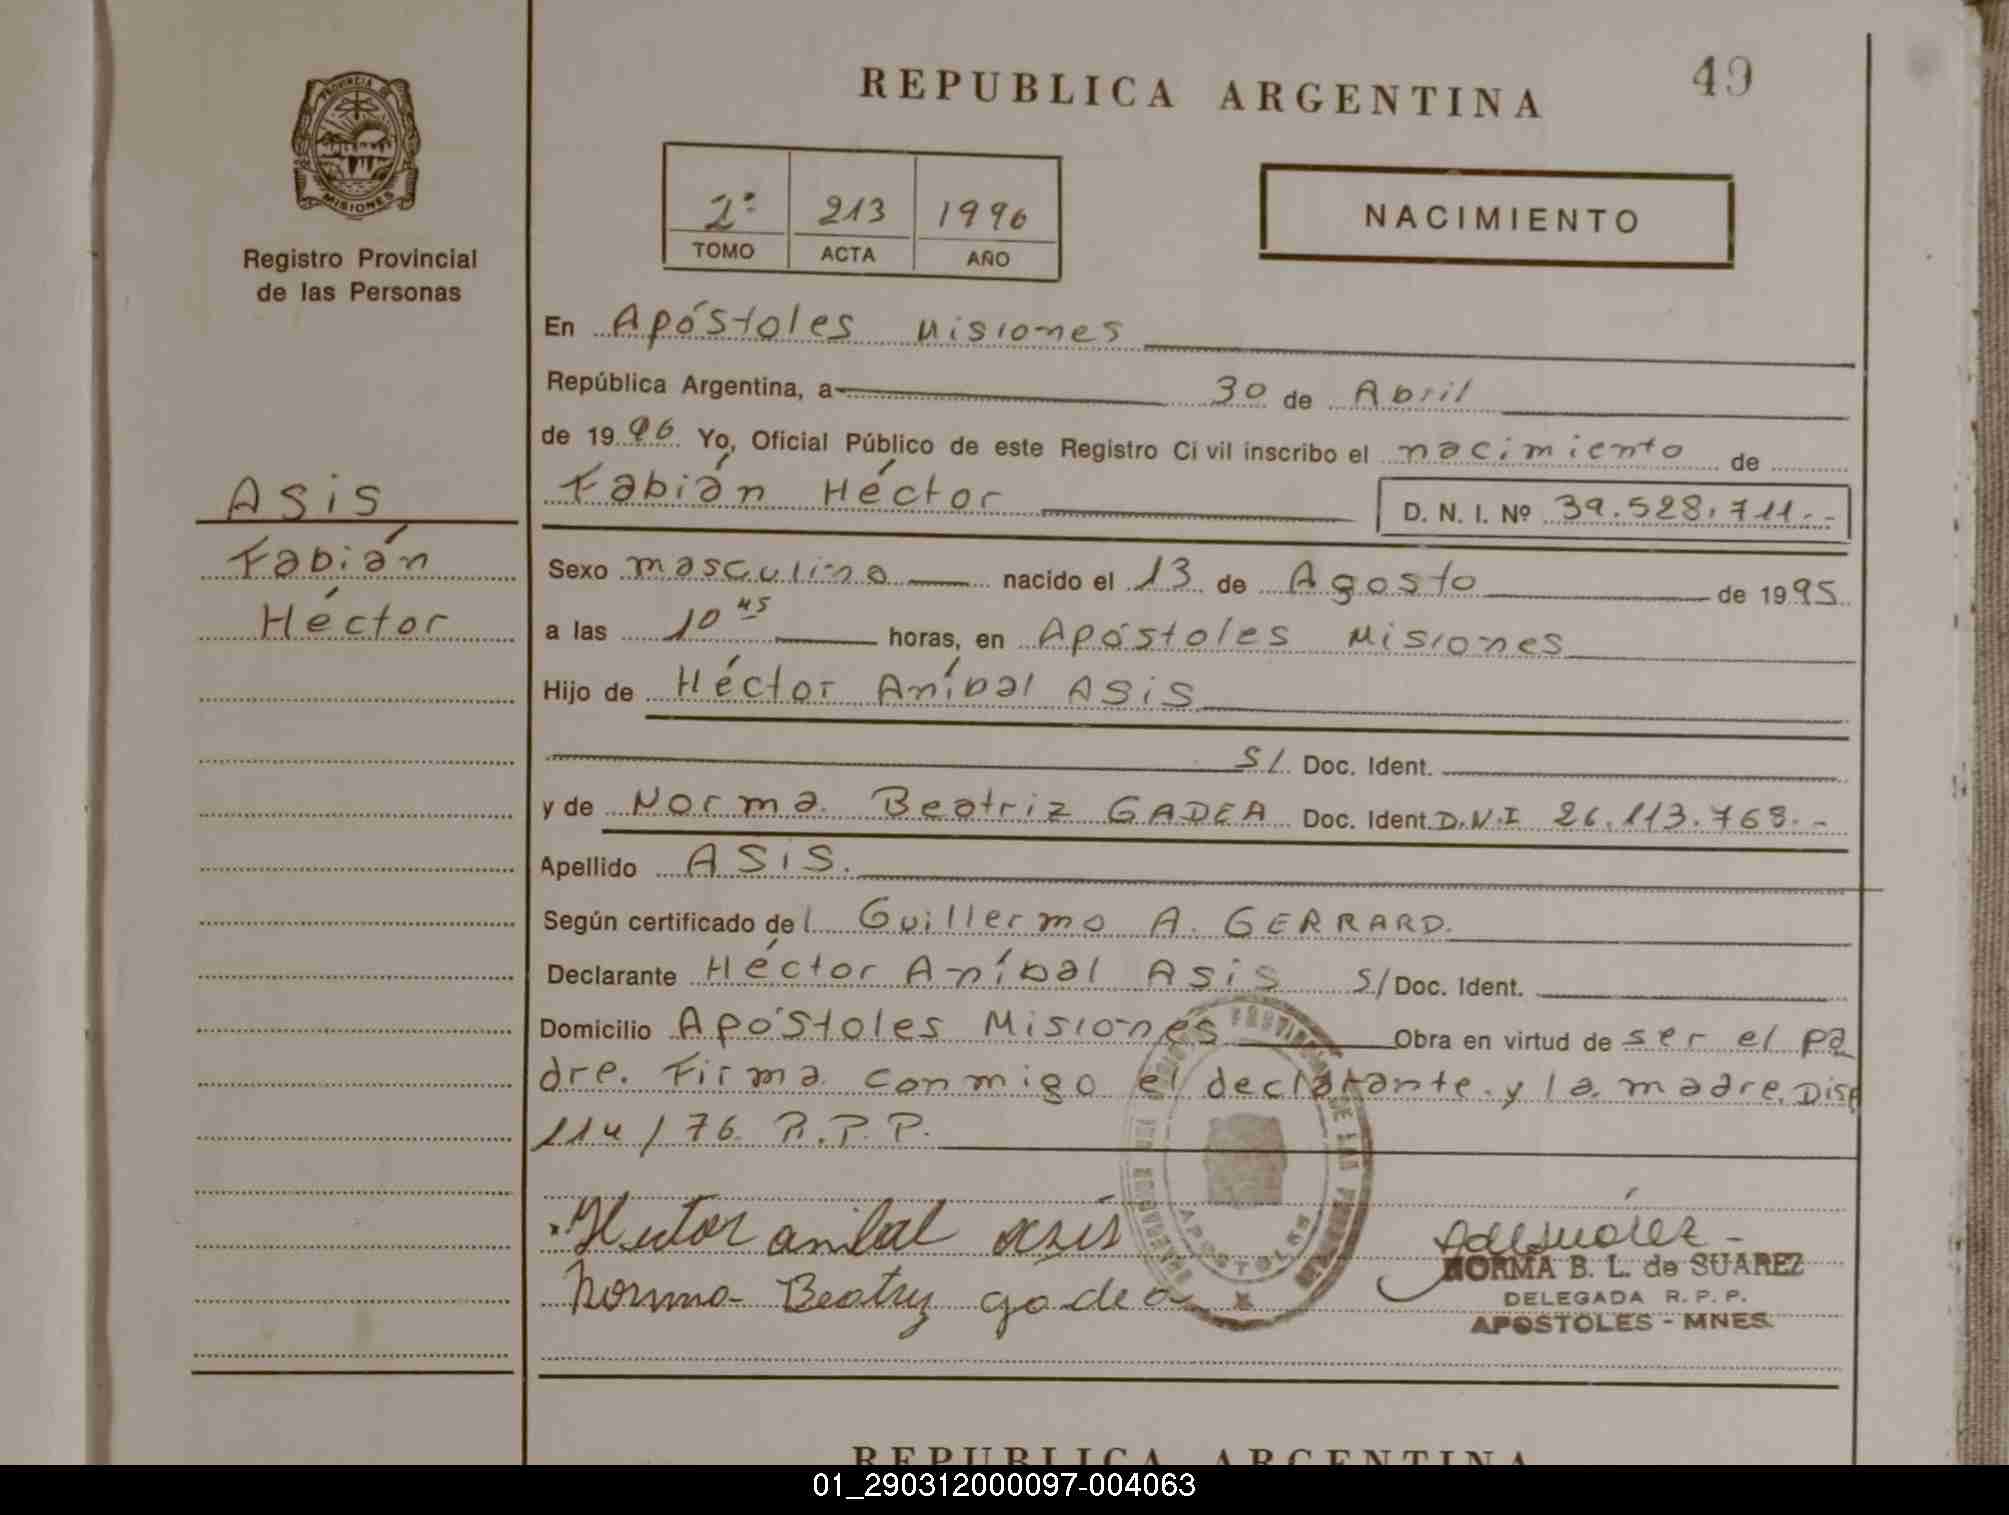 PROVINCIA DE
MISIONES
Registro Provincial
de las Personas
Asis
Fabián
Héctor
REPUBLICA ARGENTINA
49
2º 213 1996
TOMO ACTA AÑO
NACIMIENTO
En Apóstoles Misiones
República Argentina, a 30 de Abril
de 1996 Yo, Oficial Público de este Registro Civil inscribo el nacimiento de
Fabián Héctor D. N. I. Nº 39.528.711.-
Sexo masculino nacido el 13 de Agosto de 1995
a las 10 45 horas, en Apóstoles Misiones
Hijo de Héctor Aníbal Asis
S/ Doc. Ident.
y de Norma Beatriz GADEA Doc. Ident. D.N.I 26.113.768.-
Apellido ASIS.
Según certificado del Guillermo A. GERRARD.
Declarante Héctor Aníbal Asis S/ Doc. Ident.
Domicilio Apóstoles Misiones Obra en virtud de ser el pa
dre. Firma conmigo el declarante y la madre. Disp
114/76 R.P.P.
Hector anibal asis
Norma Beatriz gadea
APOSTOLES
NORMA B. L. de SUAREZ
DELEGADA R. P. P.
APOSTOLES - MNES.
REPUBLICA ARGENTINA
01_290312000097-004063